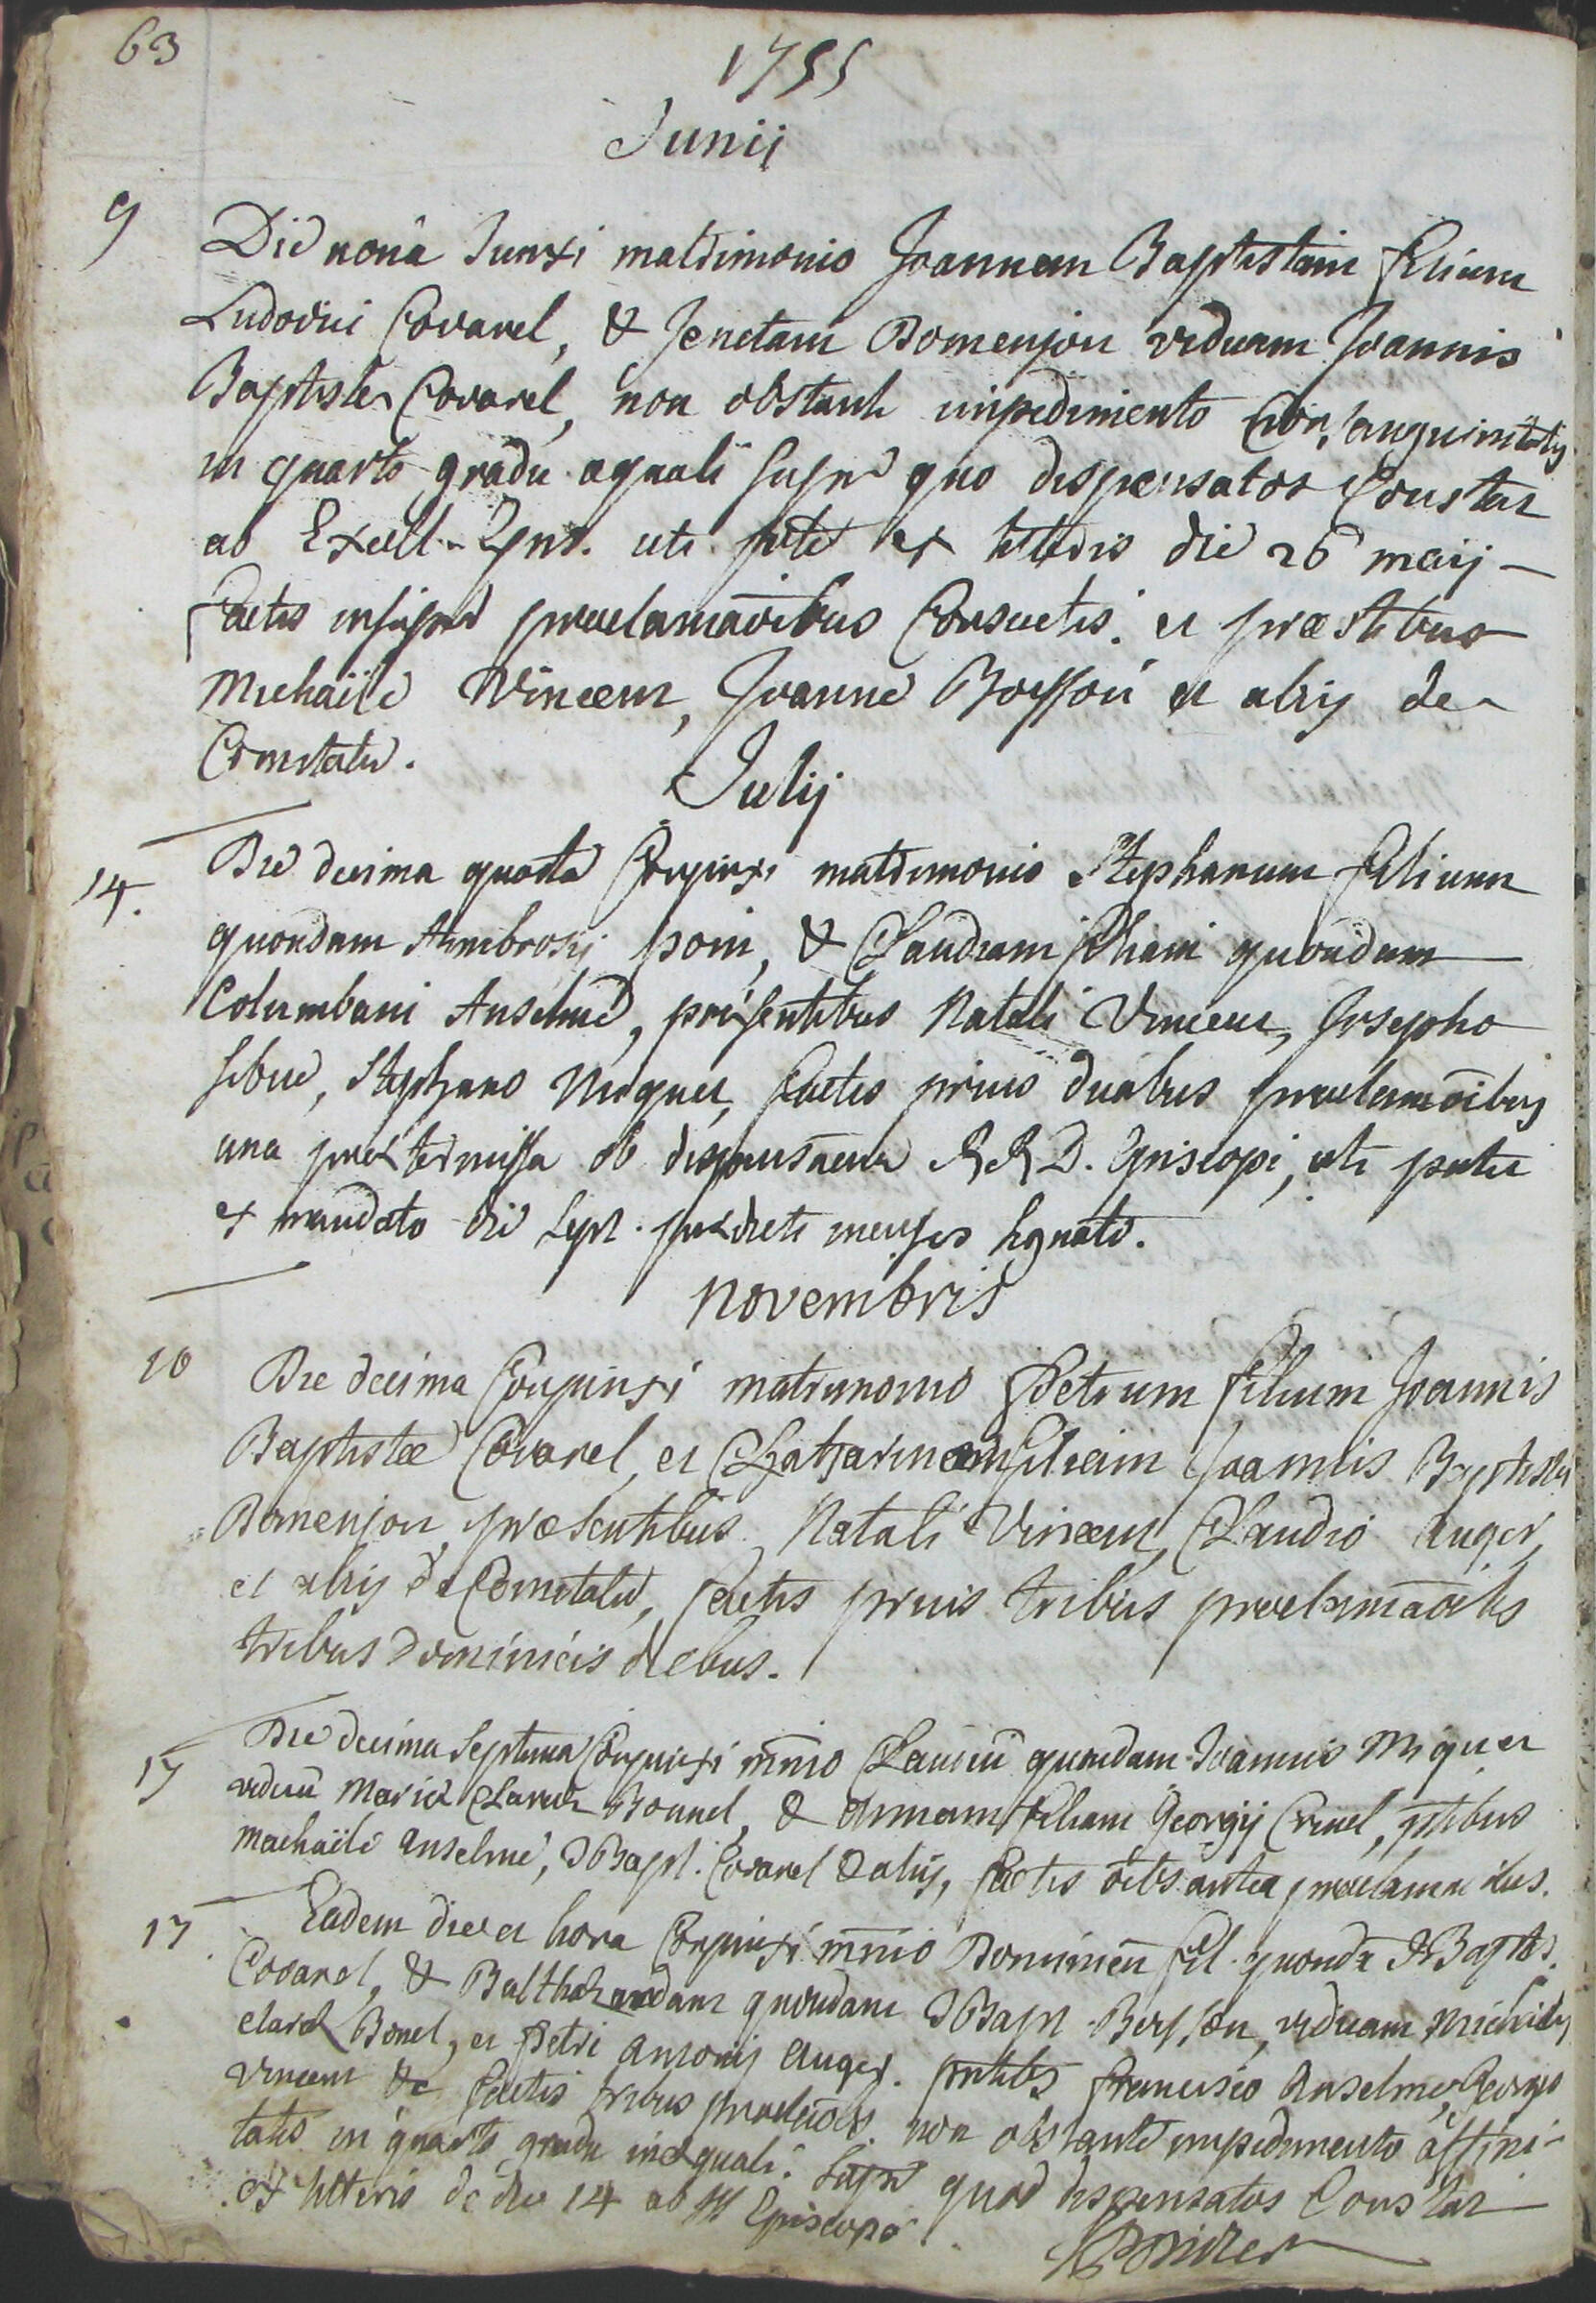 63
1755
Junii
9 Die nonâ Junxi matrimonio Joannem Baptistam filium
Ludovici Covarel, & Jenetam Domenjon viduam Joannis
Baptistæ Covarel, non obstante impedimento Consanguinitatis
in quarto gradu æquali supra quo dispensatos Constat
ab Excell. uti patet ex litteris die 26 maij –
factis insuper proclamaōibus Consuetis. et præstibus
Michaële Vincent, Joanne Boisson et alijs de
Comitatu.
Julij
14. Die decima quarta Conjunxi matrimonio Stephanum filium
quondam Ambrosij poin, & Claudiam filiam quondam
Columbani Anselme, præsentibus Natali Vincent, Josepho
Stephano Miquet, factis prius duabus proclamaōibus
una prætermissa ob dispensaōem R R D. Episcopi, uti patet
ex mandato die Sept. prædicti mensis signato.
novembris
10 Die decima Conjunxi matrimonio Petrum filium Joannis
Baptistæ Covarel, et Chatharinam filiam Joannis Baptistæ
Domenjon, præsentibus Natali Vincent, Claudio auger,
et alijs de Comitatu, factis prius tribus proclamaōibs
tribus Dominicis diebus.
17 Die decima Septima Conjunxi mnio Claudiū quondam Joannis Miquet
viduū Mariæ Claræ Bonnel, & Annam filiam Georgij Cruel, pntibus
Machaële anselme, J Bapt. Covarel & alijs, factis oibs antea proclamanibus.
17. Eadem die et hora Conjunxi mnio Dominicū fil. quondā J Baptæ.
Covarel, & Balthazardam quondam J Bapt Boisson, viduam Michaëlis
claræ Bonel, et Petri antonij auger. pntibs francisco anselme, Georgio
Vincent &c factis tribus proclaōibs. non obstante impedimento affini-
tatis in quarto gradu inæquali. Supra quod dispensatos Constat
ex litteris de die 14 ab Episcopo.